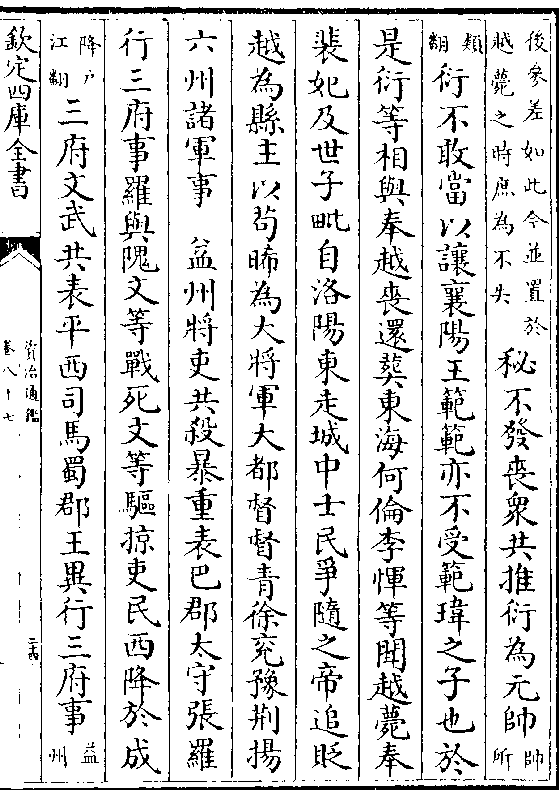 後參差如此今並置於
越薨之時庶為不失
秘不發喪衆共推衍為元帥
帥
所
類
翻
衍不敢當以讓襄陽王範範亦不受範瑋之子也於
是衍等相與奉越喪還葬東海何倫李惲等聞越薨奉
裴妃及世子毗自洛陽東走城中士民爭隨之帝追貶
越為縣主以苟晞為大將軍大都督督青徐兗豫荆揚
六州諸軍事 益州將吏共殺暴重表巴郡太守張羅
行三府事羅與隗文等戰死文等驅掠吏民西降於成
降户
江翻
三府文武共表平西司馬蜀郡王異行三府事
益
州
欽定四庫全書
資治通鑑
卷八十七